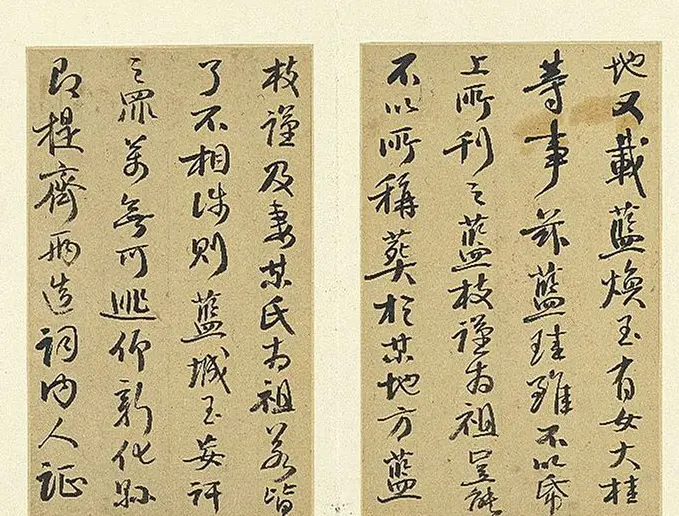 地又載藍煥玉有女大桂
等事然藍瑋雖不以
上所刊之藍枝謹為祖豈能
不以所稱葬於某地方藍
枝謹及妻某氏為祖若皆
了不相涉則藍城玉妄訐
之罪萬無可逃仰新化縣
即提齊兩造詞內人証